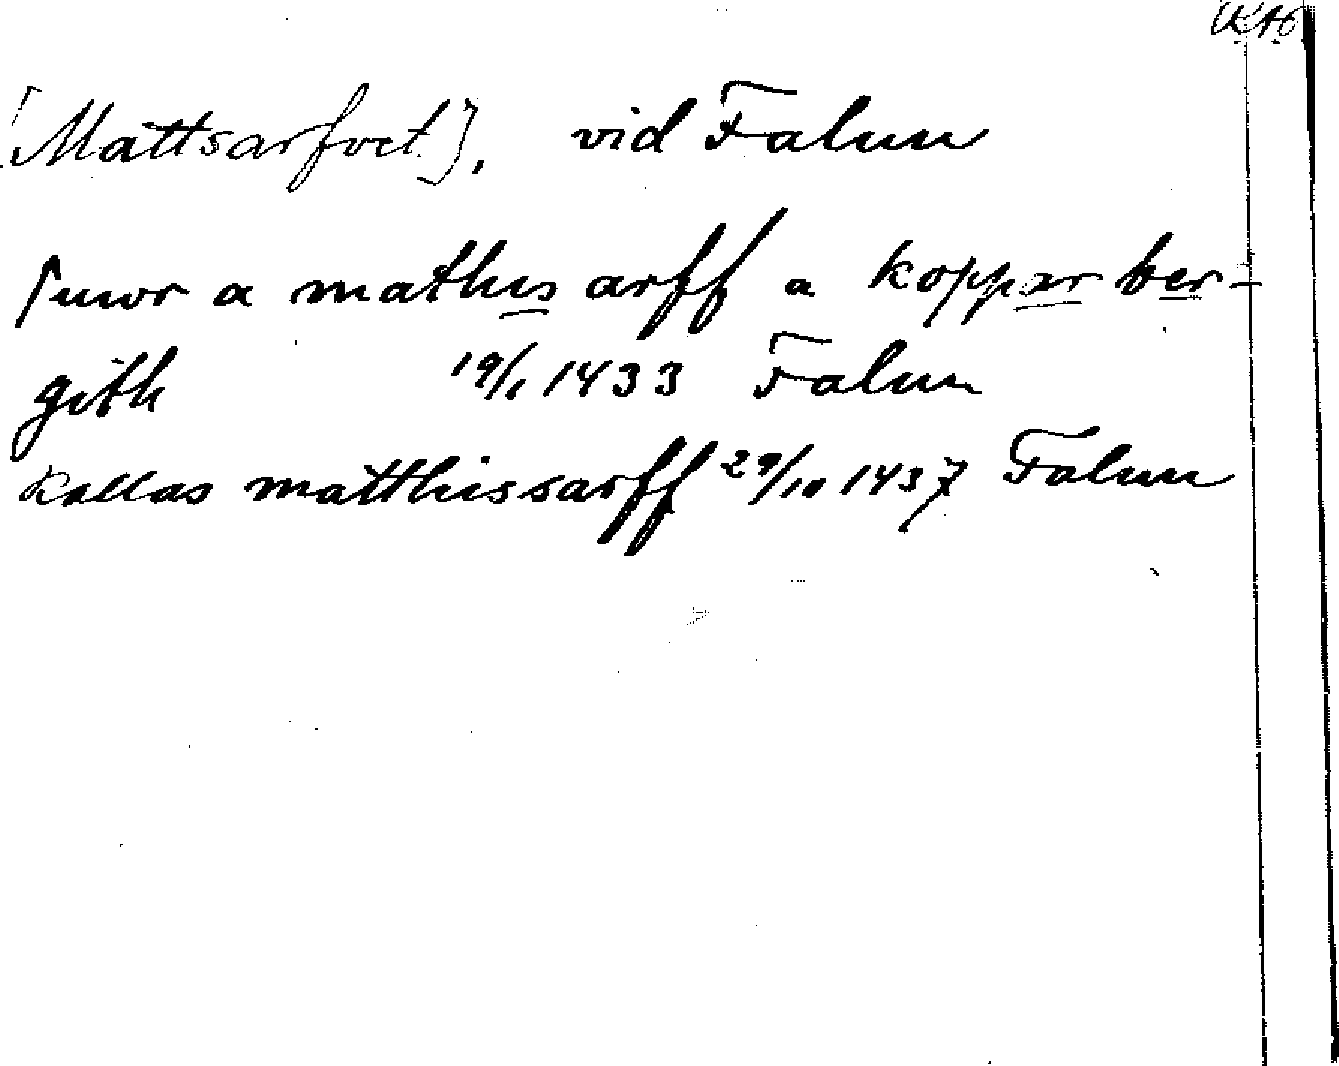 [Mattsarfvet], vid Falun
a mathis arff a koppar ber-
gith 19/1 1433 Falun
kallas matthissarff 29/10 1437 Falun